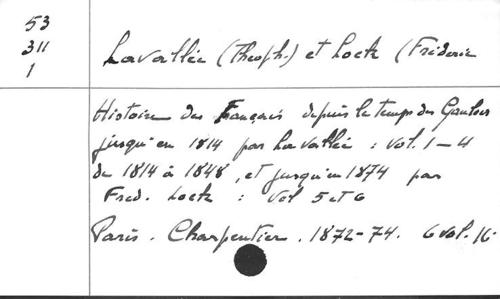 53
311
1
Lavallée (Théoph.) et Lock (Fréderic
Histoire des Français depuis le temps des Gaulois
jusqu'en 1814 par Lavallée : Vol. 1-4
de 1814 à 1848, et jusqu'en 1874 par
Fred. Lock : Vol 5 et 6
Paris. Charpentier. 1872-74. 6 vol. 16-